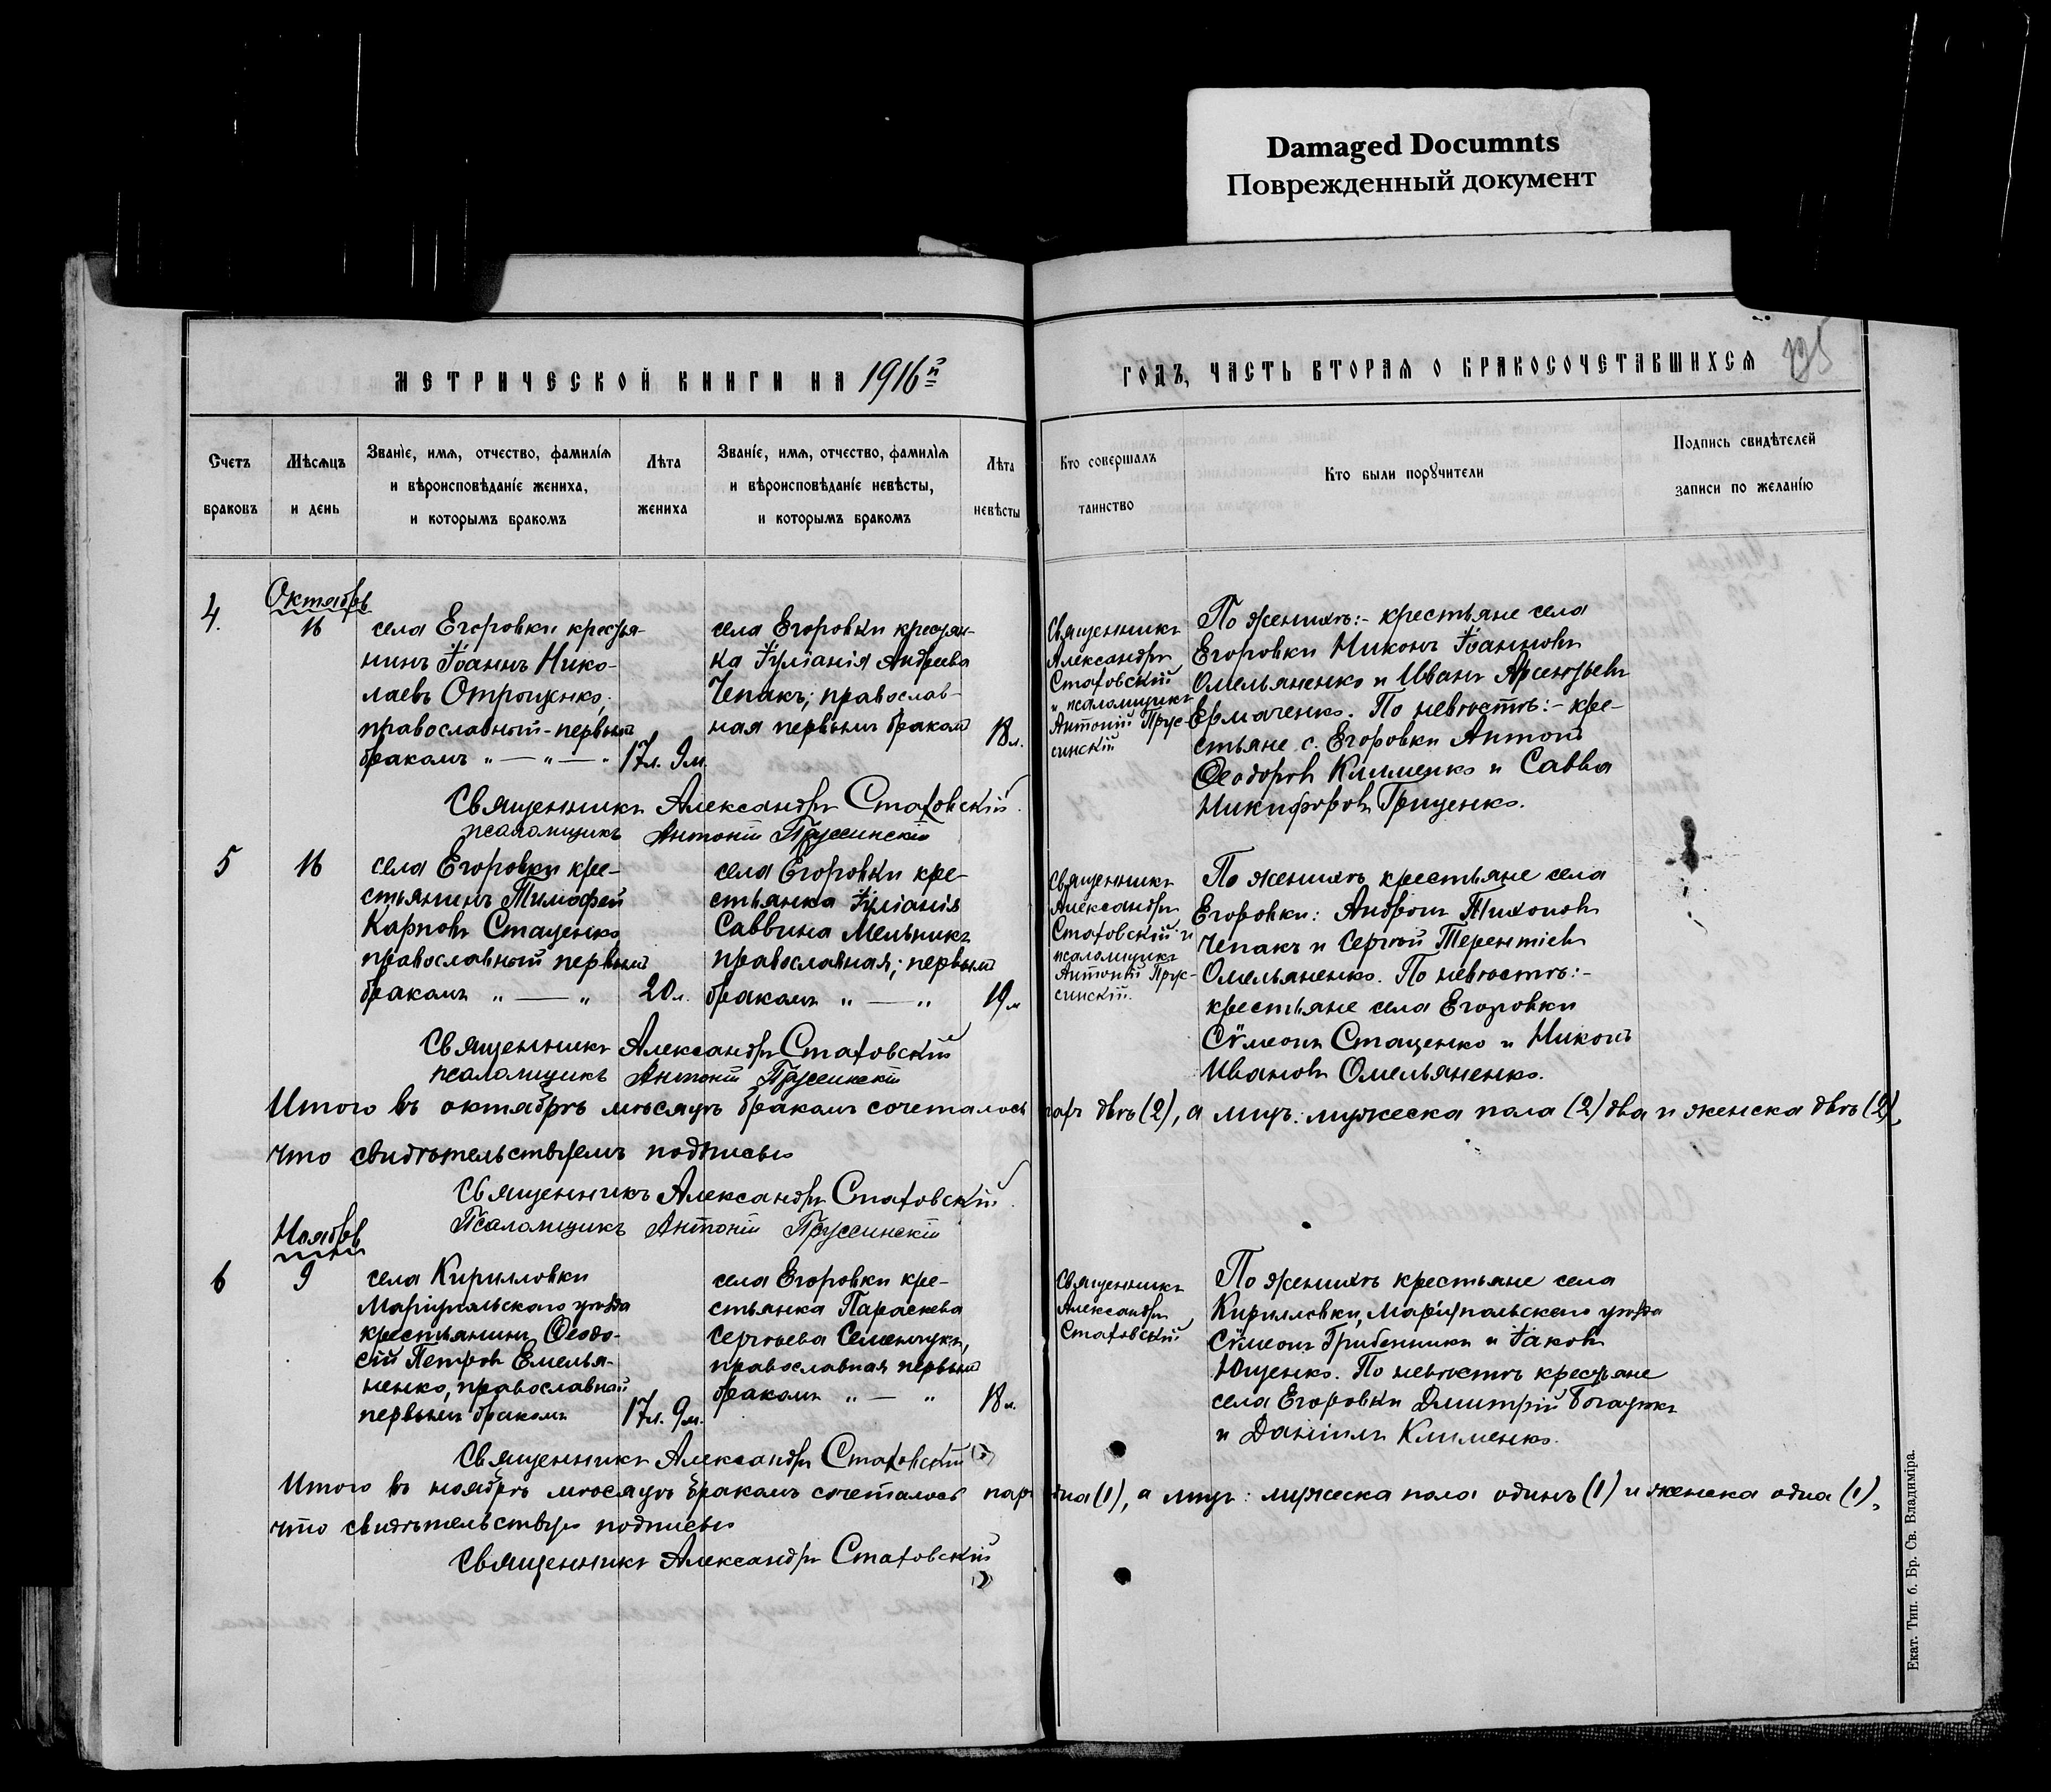 Damaged Documnts
Поврежденный документ
МЕТРИЧЕСКОЙ КНИГИ НА 1916й
ГОДЪ, ЧАСТЬ ВТОРАЯ О БРАКОСОЧЕТАВШИХСЯ
Счетъ браковъ
Мѣсяцъ и день
Званіе, имя, отчество, фамилія
и вѣроисповѣданіе жениха,
и которымъ бракомъ
Лѣта жениха
Званіе, имя, отчество, фамилія
и вѣроисповѣданіе невѣсты,
и которымъ бракомъ
Лѣта невѣсты
Кто совершалъ таинство
Кто были поручители
Подпись свидѣтелей
записи по желанію
4.
Октябрь
16
села Егоровки крестья-
нинъ Іоаннъ Нико-
лаевъ Отрощенко,
православный - первымъ
бракомъ " — " — "
17 л. 9 м.
села Егоровки крестьян-
ка Іуліанія Андреева
Чепакъ; православ-
ная первымъ бракомъ
18 л.
Священникъ
Александръ
Стаховскій
и псаломщикъ
Антоній Прус-
синскій
По женихѣ:- крестьяне села
Егоровки Никонъ Іоанновъ
Омельяненко и Иванъ Арсеньевъ
Ермаченко. По невѣстѣ:- кре-
стьяне с. Егоровки Антонъ
Ѳеодоровъ Клименко и Савва
Никифоровъ Гриценко.
Священникъ Александръ Стаховскій
псаломщикъ Антоній Пруссинскій
5
16
села Егоровки кре-
стьянинъ Тимофей
Карповъ Стаценко
православный первымъ
бракомъ " — "
20 л.
села Егоровки кре-
стьянка Іуліанія
Саввина Мельникъ
православная; первымъ
бракомъ " — "
19 л
Священникъ
Александръ
Стаховскій и
псаломщикъ
Антоній Прус-
синскій.
По женихѣ крестьяне села
Егоровки: Андрей Тихоновъ
Чепакъ и Сергѣй Терентіевъ
Омельяненко. По невѣстѣ:-
крестьяне села Егоровки
Сѵмеонъ Стаценко и Никонъ
Ивановъ Омельяненко.
Священникъ Александръ Стаховскій
псаломщикъ Антоній Пруссинскій
Итого въ октябрѣ мѣсяцѣ бракомъ сочеталось паръ двѣ (2), а лицъ: мужеска пола (2) два и женска двѣ (2),
что свидѣтельствуемъ подписью
Священникъ Александръ Стаховскій
Псаломщикъ Антоній Пруссинскій
Ноябрь
6
9
села Кирилловки
Маріупольскаго уѣзда
крестьянинъ Ѳеодо-
сій Петровъ Емелья-
ненко, православный
первымъ бракомъ
17 л. 9 м.
села Егоровки кре-
стьянка Параскева
Сергѣева Семенчукъ,
православная первымъ
бракомъ " — "
18 л.
Священникъ
Александръ
Стаховскій
По женихѣ крестьяне села
Кирилловки, Маріупольскаго уѣзда
Сѵмеонъ Гребенникъ и Іаковъ
Ющенко. По невѣстѣ крестьяне
села Егоровки Димитрій
и Даніилъ Клименко.
Священникъ Александръ Стаховскій
Итого въ ноябрѣ мѣсяцѣ бракомъ сочеталось пара одна (1), а лицъ: мужеска пола одинъ (1) и женска одна (1),
что свидѣтельствую подписью
Священникъ Александръ Стаховскій
Екат. Тип. б. Бр. Св. Владиміра.